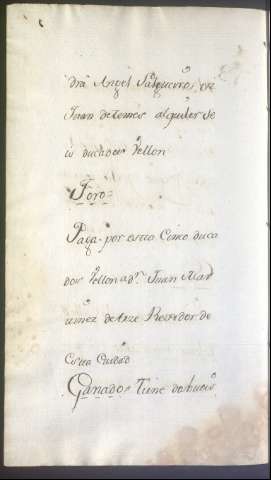 dra Angel Salgueiro, ore
Juan de temes alquiler se
is ducados Vellon
Foro=
Paga por esta Cinco duca
dos Vellon a Dn. Juan Mar
tinez de Arze Rexidor de
Esta Ciudad
Ganado= Tiene dos bueis